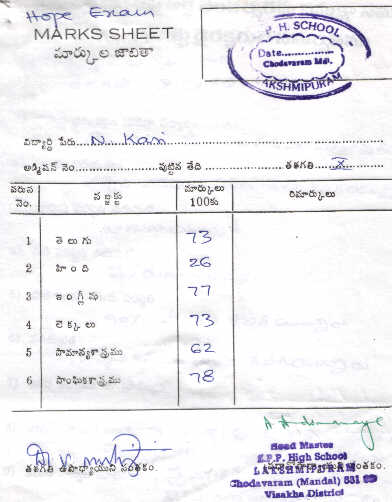 Hope Exam
MARKS SHEET
మార్కుల జాబితా
P. H. SCHOOL
Date
Chodavaram Mdl.
LAKSHMIPURAM
విద్యార్థి పేరు N. Kasi
అడ్మిషన్ నెం. పుట్టిన తేది తరగతి X
వరుస నెం. సబ్జక్టు మార్కులు 100కు రిమార్కులు
1 తెలుగు 73
2 హింది 26
3 ఇంగ్లీషు 77
4 లెక్కలు 73
5 సామాన్యశాస్త్రము 62
6 సాంఘికశాస్త్రము 78
తరగతి ఉపాధ్యాయుని సంతకం.
Head Master
Z.P.P. High School
LAKSHMIPURAM
Chodavaram (Mandal) 531
Visakha District